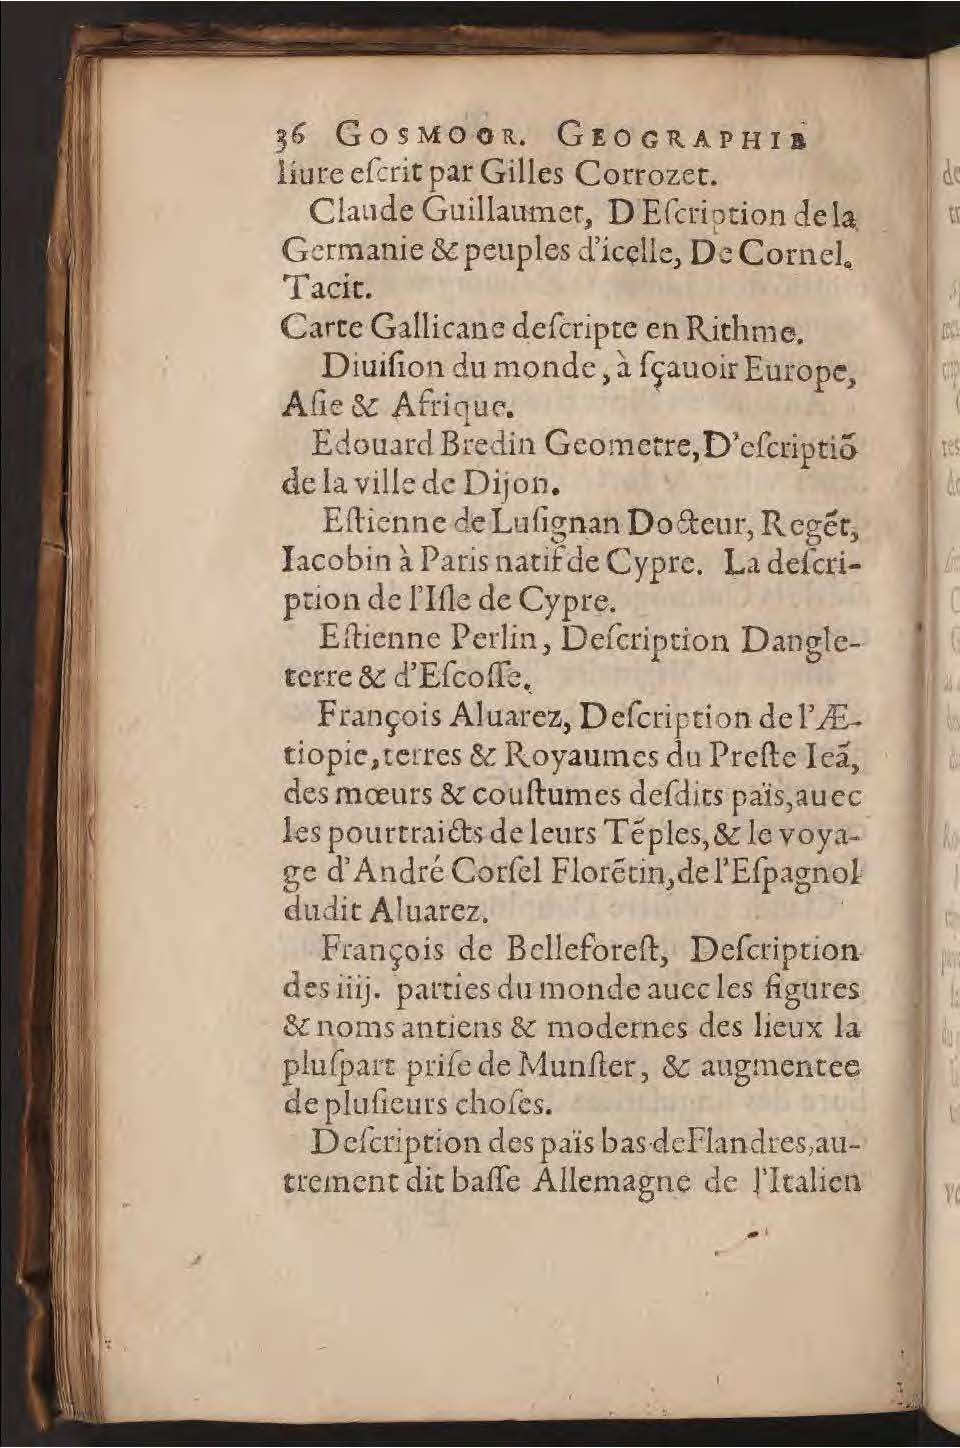 36 GOSMOGR. GEOGRAPHIE
liure eſcrit par Gilles Corrozet.
Claude Guillaumet, D Eſcription de la
Germanie & peuples d'icelle, De Cornel.
Tacit.
Carte Gallicane deſcripte en Rithme.
Diuiſion du monde, à ſçauoir Europe,
Aſie & Afrique.
Edouard Bredin Geometre, D'eſcriptiõ
de la ville de Dijon.
Eſtienne de Luſignan Docteur, Regẽt,
Iacobin à Paris natif de Cypre. La deſcri-
ption de l'Iſle de Cypre.
Eſtienne Perlin, Deſcription Dangle-
terre & d'Eſcoſſe.
François Aluarez, Deſcription de l'Æ-
tiopie, terres & Royaumes du Preſte Ieã,
des mœurs & couſtumes deſdits païs, auec
les pourtraicts de leurs Tẽples, & le voya-
ge d'André Corſel Florẽtin, de l'Eſpagnol
dudit Aluarez.
François de Belleforeſt, Deſcription
des iiij. parties du monde auec les figures
& noms antiens & modernes des lieux la
pluſpart priſe de Munſter, & augmentee
de pluſieurs choſes.
Deſcription des païs bas de Flandres, au-
trement dit baſſe Allemagne de l'Italien